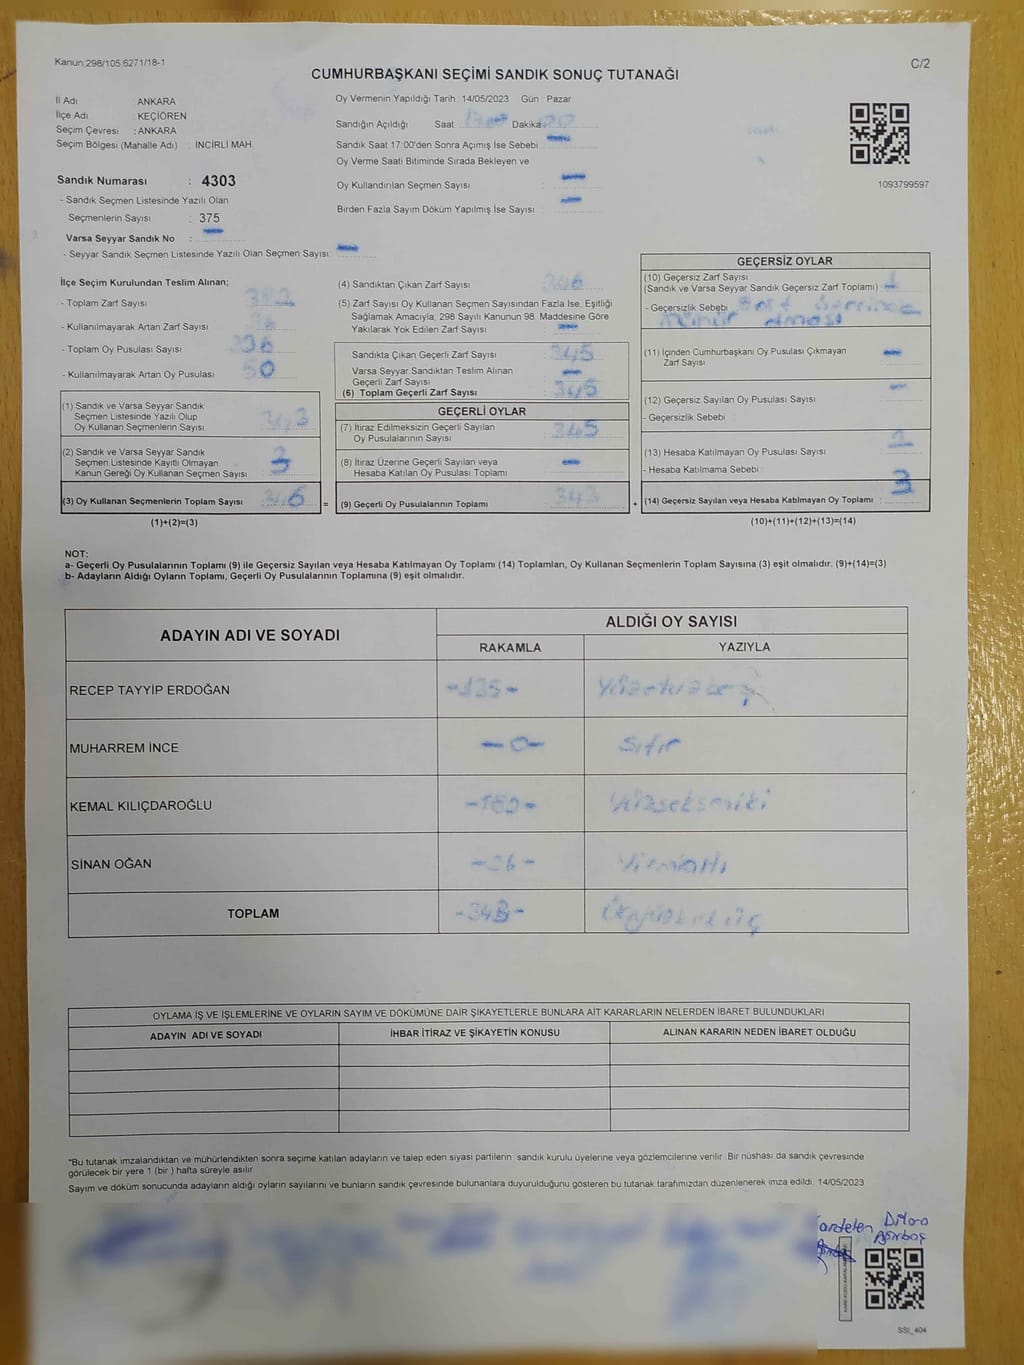 Kanun:298/105,6271/18-1
C/2
CUMHURBAŞKANI SEÇİMİ SANDIK SONUÇ TUTANAĞI
İl Adı ANKARA
İlçe Adı : KEÇİÖREN
Seçim Çevresi : ANKARA
Seçim Bölgesi (Mahalle Adı) : İNCİRLİ MAH.
Oy Vermenin Yapıldığı Tarih : 14/05/2023 Gün : Pazar
Sandığın Açıldığı Saat Dakika
Sandık Saat 17:00'den Sonra Açımış İse Sebebi
Oy Verme Saati Bitiminde Sırada Bekleyen ve
Oy Kullandırılan Seçmen Sayısı :
Birden Fazla Sayım Döküm Yapılmış İse Sayısı :
1093799597
Sandık Numarası : 4303
- Sandık Seçmen Listesinde Yazılı Olan
Seçmenlerin Sayısı : 375
Varsa Seyyar Sandık No :
- Seyyar Sandık Seçmen Listesinde Yazılı Olan Seçmen Sayısı:
İlçe Seçim Kurulundan Teslim Alınan;
- Toplam Zarf Sayısı
- Kullanılmayarak Artan Zarf Sayısı
- Toplam Oy Pusulası Sayısı
- Kullanılmayarak Artan Oy Pusulası 50
(1) Sandık ve Varsa Seyyar Sandık
Seçmen Listesinde Yazılı Olup
Oy Kullanan Seçmenlerin Sayısı 343
(2) Sandık ve Varsa Seyyar Sandık
Seçmen Listesinde Kayıtlı Olmayan
Kanun Gereği Oy Kullanan Seçmen Sayısı 3
(3) Oy Kullanan Seçmenlerin Toplam Sayısı 346 =
(1)+(2)=(3)
(4) Sandıktan Çıkan Zarf Sayısı 346
(5) Zarf Sayısı Oy Kullanan Seçmen Sayısından Fazla İse, Eşitliği
Sağlamak Amacıyla, 298 Sayılı Kanunun 98. Maddesine Göre
Yakılarak Yok Edilen Zarf Sayısı
Sandıkta Çıkan Geçerli Zarf Sayısı 345
Varsa Seyyar Sandıktan Teslim Alınan
Geçerli Zarf Sayısı
(6) Toplam Geçerli Zarf Sayısı 345
GEÇERLİ OYLAR
(7) İtiraz Edilmeksizin Geçerli Sayılan
Oy Pusulalarının Sayısı 345
(8) İtiraz Üzerine Geçerli Sayılan veya
Hesaba Katılan Oy Pusulası Toplamı
(9) Geçerli Oy Pusulalarının Toplamı 343 +
GEÇERSİZ OYLAR
(10) Geçersiz Zarf Sayısı
(Sandık ve Varsa Seyyar Sandık Geçersiz Zarf Toplamı) 1
- Geçersizlik Sebebi üzerinde
mühür olması
(11) İçinden Cumhurbaşkanı Oy Pusulası Çıkmayan
Zarf Sayısı
(12) Geçersiz Sayılan Oy Pusulası Sayısı
- Geçersizlik Sebebi
(13) Hesaba Katılmayan Oy Pusulası Sayısı 2
- Hesaba Katılmama Sebebi
(14) Geçersiz Sayılan veya Hesaba Katılmayan Oy Toplamı 3
(10)+(11)+(12)+(13)=(14)
NOT:
a- Geçerli Oy Pusulalarının Toplamı (9) ile Geçersiz Sayılan veya Hesaba Katılmayan Oy Toplamı (14) Toplamları, Oy Kullanan Seçmenlerin Toplam Sayısına (3) eşit olmalıdır. (9)+(14)=(3)
b- Adayların Aldığı Oyların Toplamı, Geçerli Oy Pusulalarının Toplamına (9) eşit olmalıdır.
ADAYIN ADI VE SOYADI
ALDIĞI OY SAYISI
RAKAMLA YAZIYLA
RECEP TAYYİP ERDOĞAN -135- Yüzotuzbeş
MUHARREM İNCE -0- Sıfır
KEMAL KILIÇDAROĞLU -182- Yüzseksmiki
SİNAN OĞAN -26- Yirmialtı
TOPLAM -343- Üçyüzkırküç
OYLAMA İŞ VE İŞLEMLERİNE VE OYLARIN SAYIM VE DÖKÜMÜNE DAİR ŞİKAYETLERLE BUNLARA AİT KARARLARIN NELERDEN İBARET BULUNDUKLARI
ADAYIN ADI VE SOYADI İHBAR İTİRAZ VE ŞİKAYETİN KONUSU ALINAN KARARIN NEDEN İBARET OLDUĞU
*Bu tutanak imzalandıktan ve mühürlendikten sonra seçime katılan adayların ve talep eden siyasi partilerin sandık kurulu üyelerine veya gözlemcilerine verilir. Bir nüshası da sandık çevresinde
görülecek bir yere 1 (bir ) hafta süreyle asılır
Sayım ve döküm sonucunda adayların aldığı oyların sayılarını ve bunların sandık çevresinde bulunanlara duyurulduğunu gösteren bu tutanak tarafımızdan düzenlenerek imza edildi. 14/05/2023
SSI_404